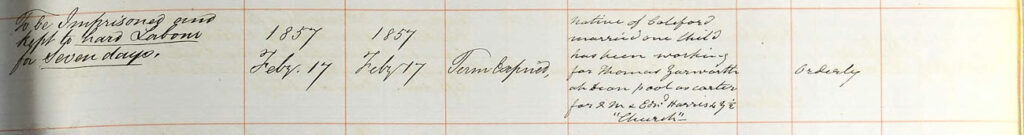 To be Imprisoned and
kept to hard Labour
for Seven days.
1857
Feby. 17
1857
Feby 17
Term Expired,
Native of Coleford
married one Child
has been working
for Thomas Yarworth
at Dean pool as carter
for 2 M & Edwd Harris 4 ye
"Church"
Orderly